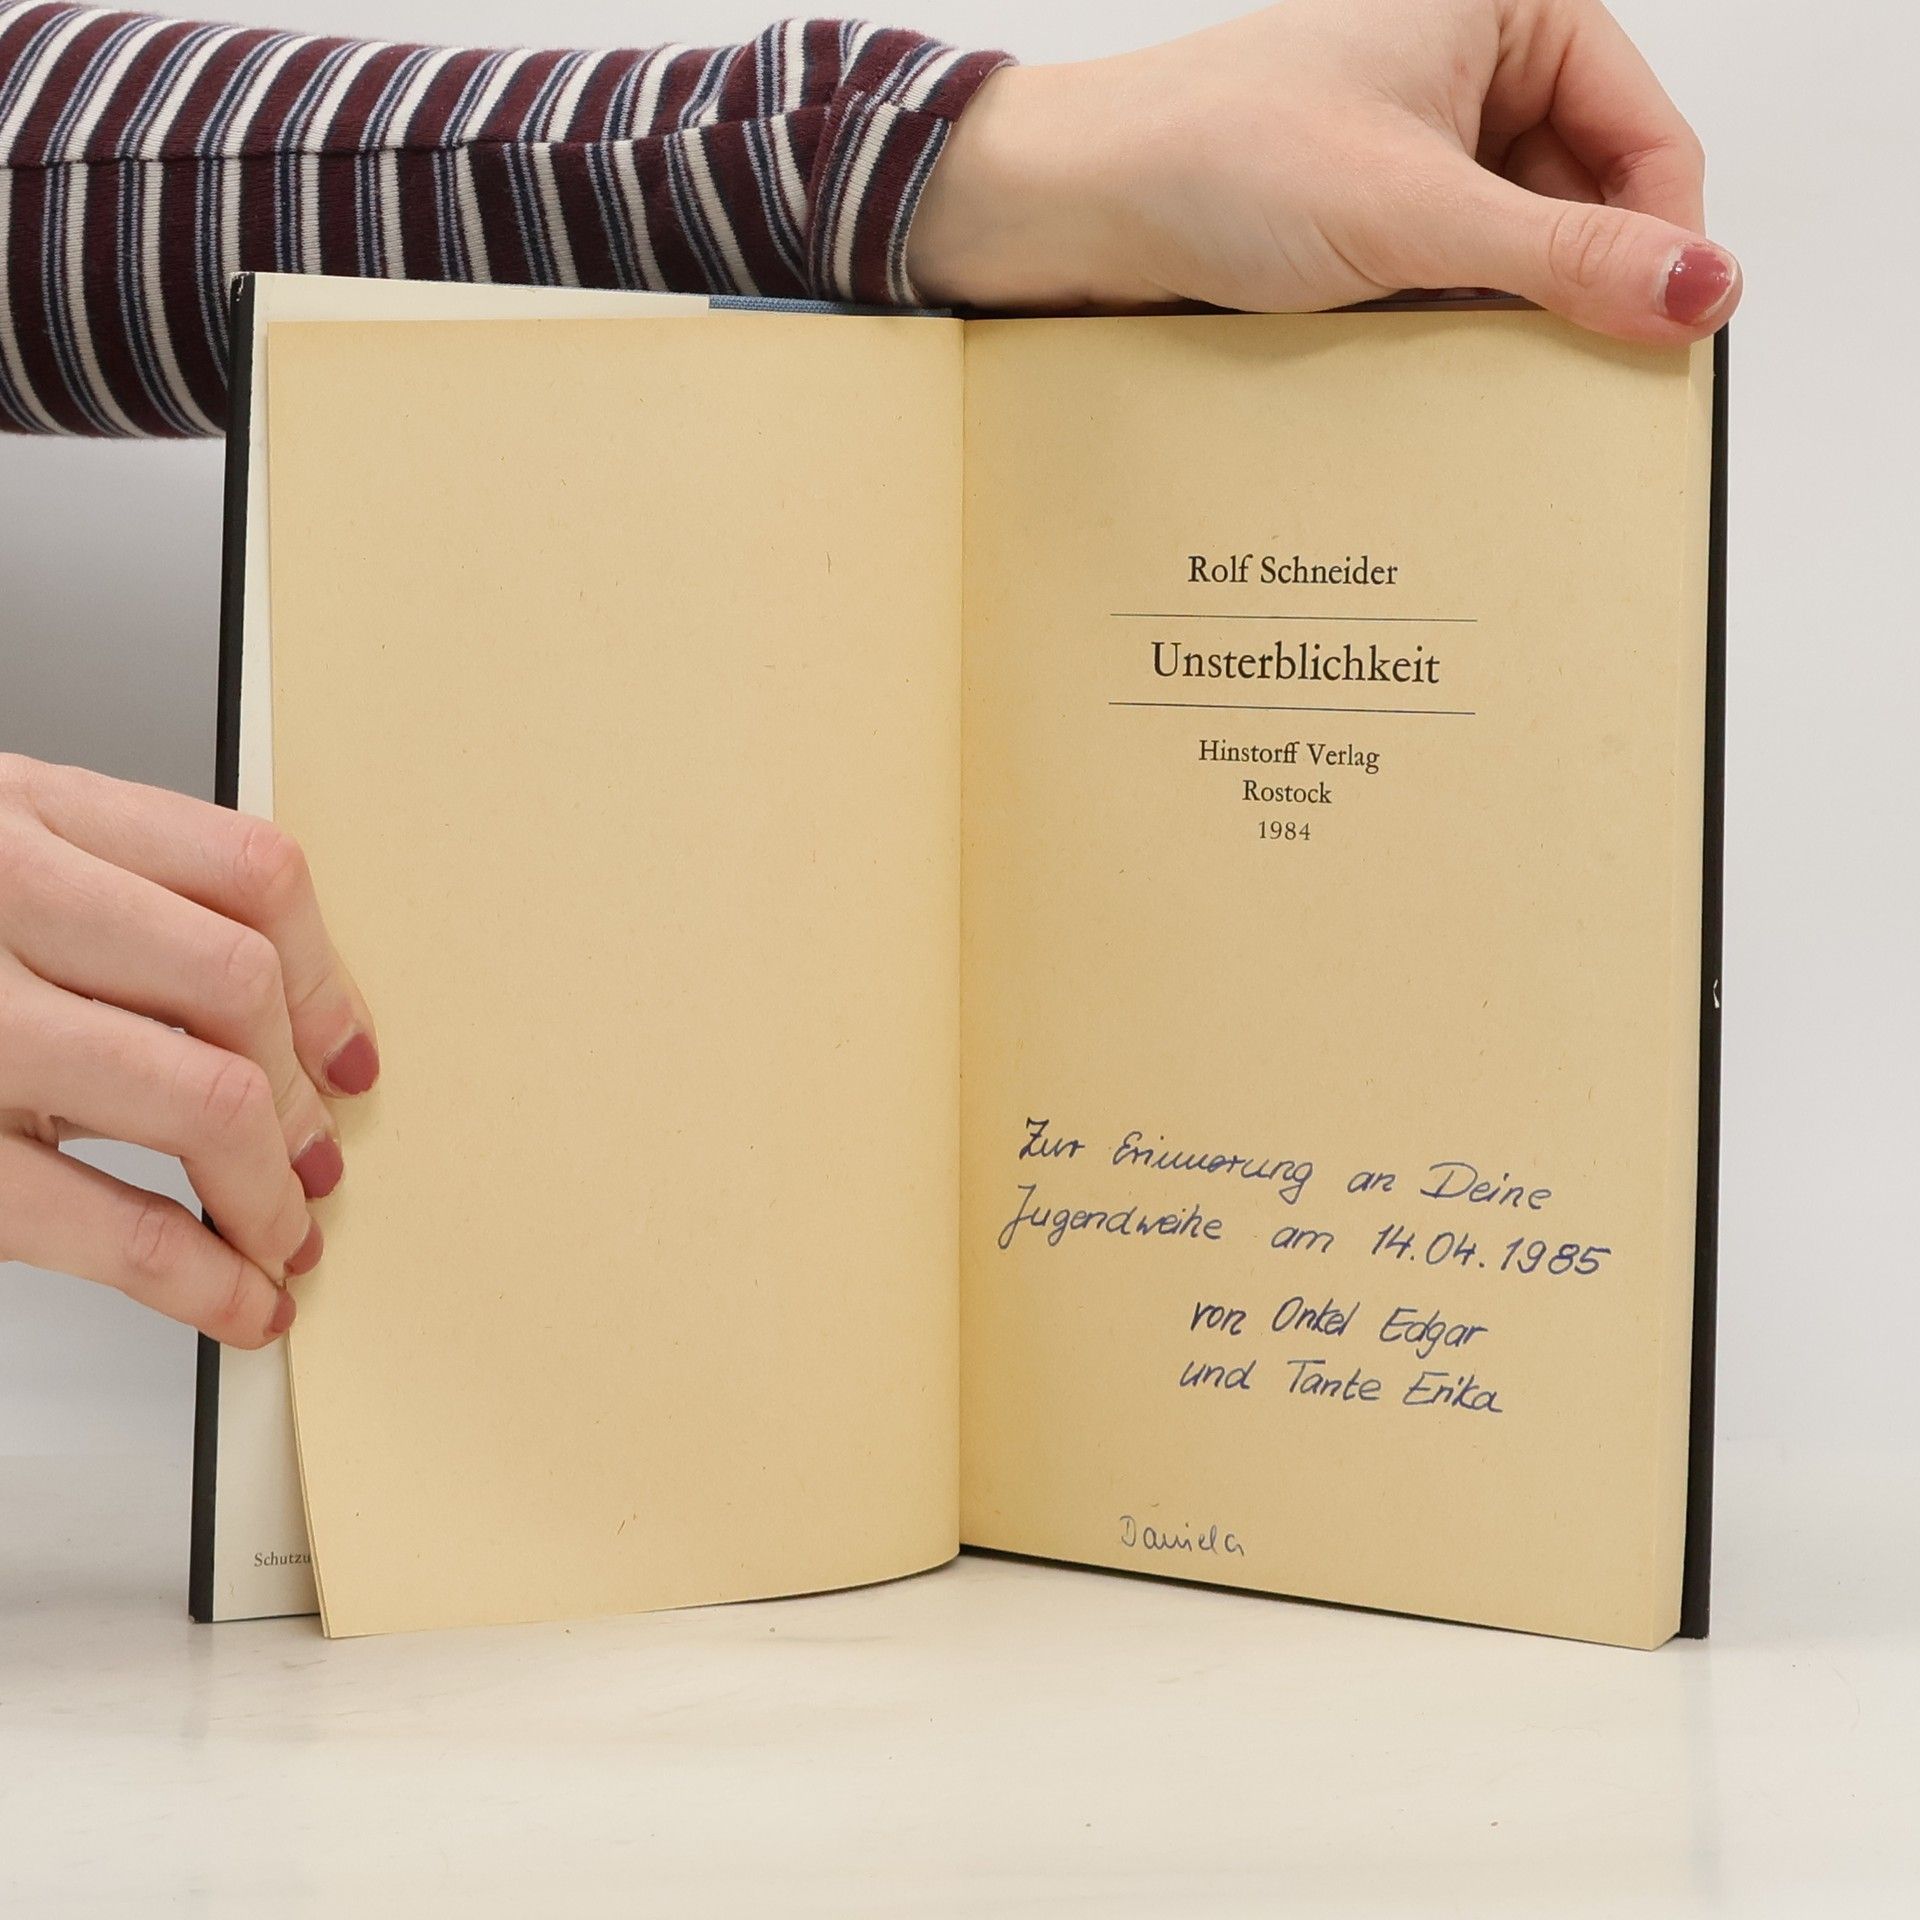 Rolf Schneider
Unsterblichkeit
Hinstorff Verlag
Rostock
1984
Zur Erinnerung an Deine
Jugendweihe am 14.04.1985
von Onkel Edgar
und Tante Erika
Daniela
Schutzu